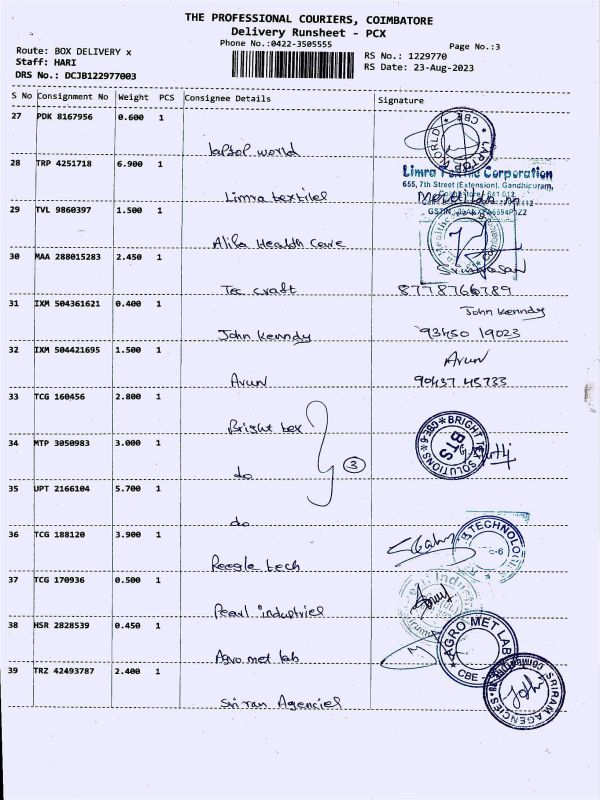 THE PROFESSIONAL COURIERS, COIMBATORE
Delivery Runsheet - PCX
Phone No.:0422-3505555
Page No.:3
Route: BOX DELIVERY x
Staff: HARI
DRS No.: DCJB122977003
RS No.: 1229770
RS Date: 23-Aug-2023
S No Consignment No Weight PCS Consignee Details Signature
27 PDK 8167956 0.600 1
laptop world
LAPTOP WORLD * CBE *
28 TRP 4251718 6.900 1
Limra textiles
Limra Corporation
655, 7th Street (Extension), Gandhipuram,
29 TVL 9860397 1.500 1
Alila Health Care
30 MAA 288015283 2.450 1
Tec craft
Srinivasan
8778766789
31 IXM 504361621 0.400 1
John kenndy
John Kenndy
93450 19023
32 IXM 504421695 1.500 1
Arun
Arun
90437 45733
33 TCG 160456 2.800 1
Bright tex
BRIGHT TEC SOLUTIONS
BTS
34 MTP 3050983 3.000 1
do
3
35 UPT 2166104 5.700 1
do
36 TCG 188120 3.900 1
Reegle tech
TECHNOLO
37 TCG 170936 0.500 1
Pearl industries
38 HSR 2828539 0.450 1
Agro met lab
AGRO MET LAB
CBE -
39 TRZ 42493787 2.400 1
Sriram Agencies
SRIRAM AGENCIES